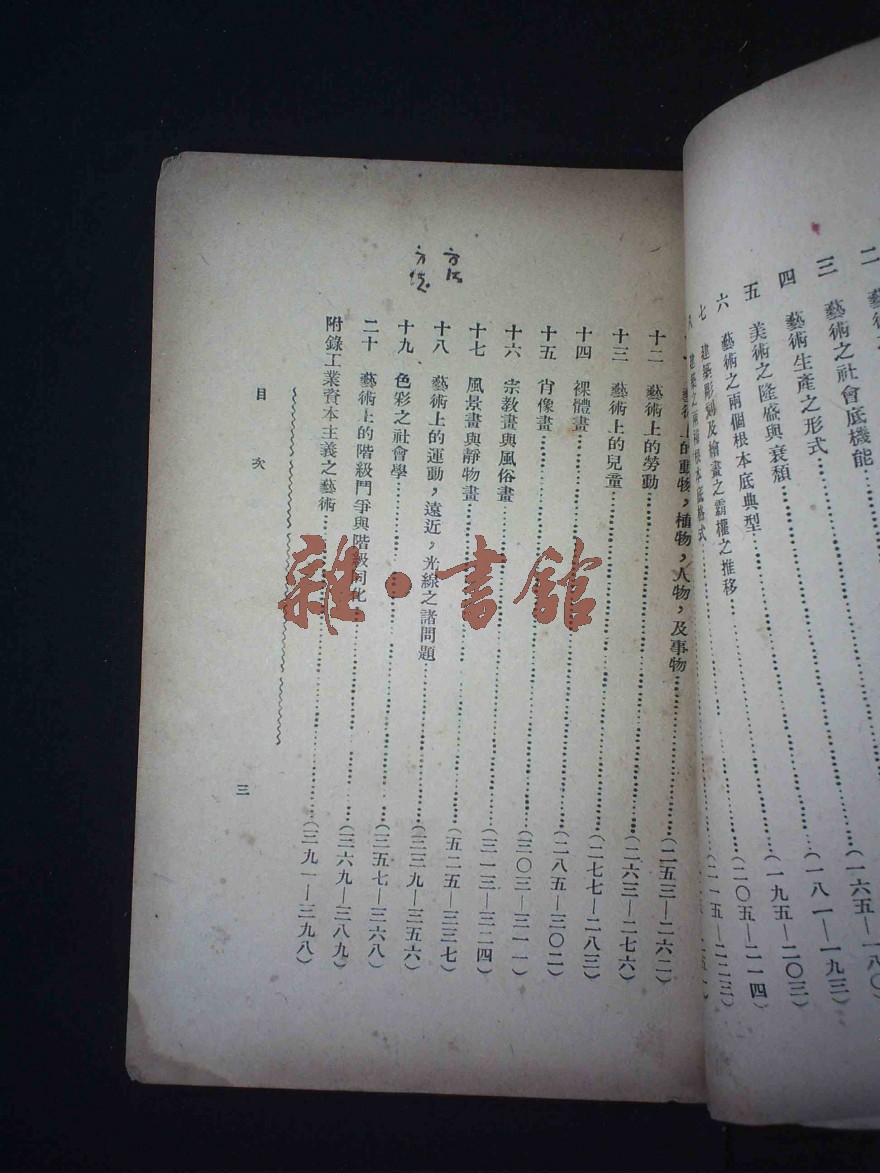 二 藝術
三 藝術之社會底機能……(一六五—一八〇)
四 藝術生產之形式……(一八一—一九三)
五 美術之隆盛與衰頹……(一九五—二〇三)
六 藝術之兩個根本底典型……(二〇五—二一四)
七 建築彫刻及繪畫之霸權之推移……(二一五—二二三)
建築之兩種根本底格式……
藝術上的動物,植物,人物,及事物……(二五三—二六二)
十二 藝術上的勞動……(二六三—二七六)
十三 藝術上的兒童……(二七七—二八三)
十四 裸體畫……(二八五—三〇二)
十五 肖像畫……(三〇三—三一一)
十六 宗教畫與風俗畫……(三一三—三二四)
十七 風景畫與靜物畫……(五二五—三三七)
十八 藝術上的運動,遠近,光線之諸問題……(三三九—三五六)
十九 色彩之社會學……(三五七—三六八)
二十 藝術上的階級鬥爭與階級同化……(三六九—三八九)
附錄工業資本主義之藝術……(三九一—三九八)
目次
三
雜·書館